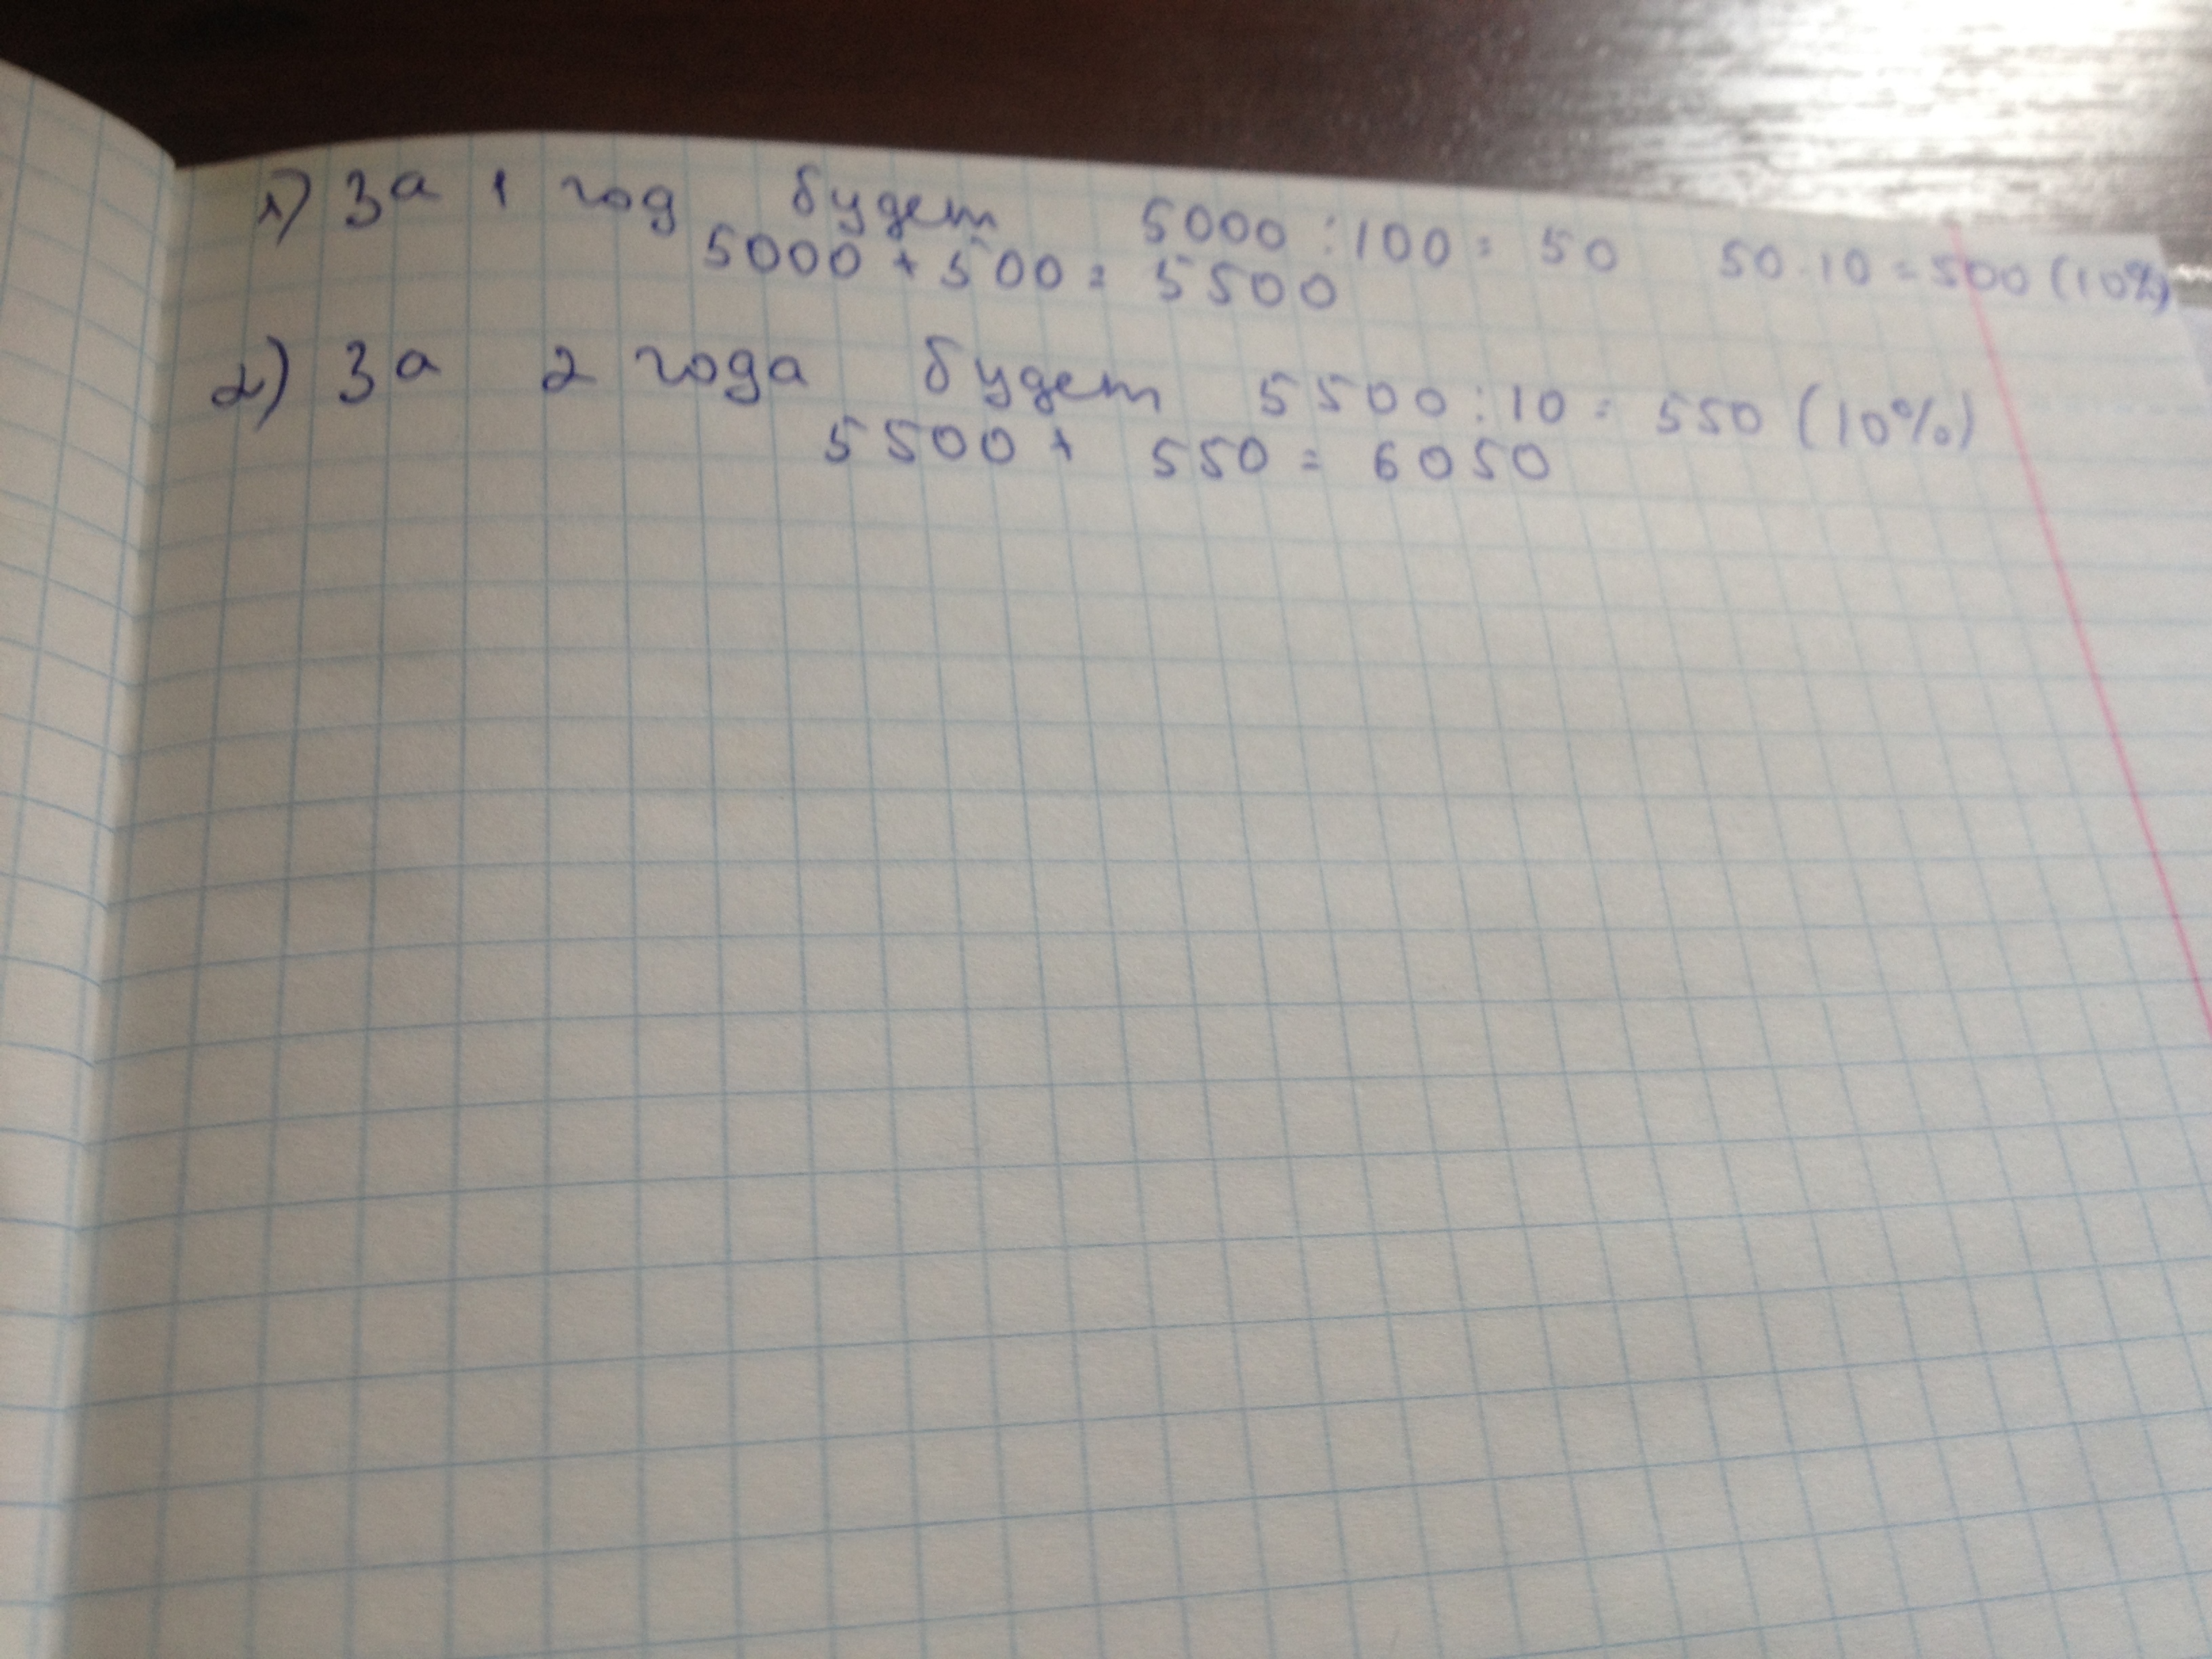 1) За 1 год будет 5000 : 100 = 50 50 · 10 = 500 (10%)
5000 + 500 = 5500
2) За 2 года будет 5500 : 10 = 550 (10%)
5500 + 550 = 6050